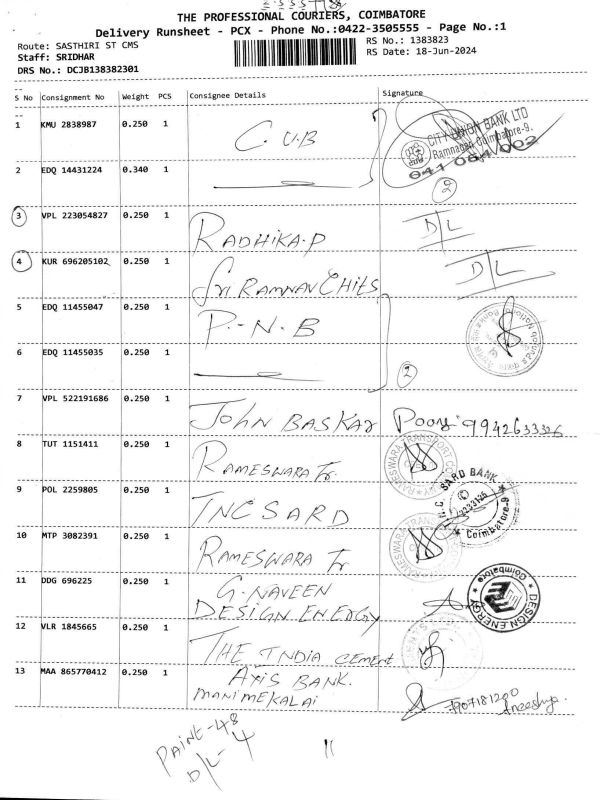 THE PROFESSIONAL COURIERS, COIMBATORE
Delivery Runsheet - PCX - Phone No.:0422-3505555 - Page No.:1
Route: SASTHIRI ST CMS
RS No.: 1383823
Staff: SRIDHAR
RS Date: 18-Jun-2024
DRS No.: DCJB138382301
S No Consignment No Weight PCS Consignee Details Signature
1 KMU 2838987 0.250 1 C.U.B
CITY UNION BANK LTD
Ramnagar Coimbatore-9.
641 064 002
2 EDQ 14431224 0.340 1
2
3 VPL 223054827 0.250 1 RADHIKA.P D/L
4 KUR 696205102 0.250 1 Sri. RAMNAV CHITS D/L
5 EDQ 11455047 0.250 1 P.-N.B
6 EDQ 11455035 0.250 1
2
7 VPL 522191686 0.250 1 JOHN BASKAR
8 TUT 1151411 0.250 1 RAMESWARA Tr.
RAMESWARA TRANSPORT CO
9 POL 2259805 0.250 1 TNCSARD
SARD BANK
Coimbatore-9
10 MTP 3082391 0.250 1 RAMESWARA Tr
11 DDG 696225 0.250 1 G.NAVEEN
DESIGN ENERGY
DESIGN ENERGY
Coimbatore
12 VLR 1845665 0.250 1 THE INDIA CEMENT
13 MAA 865770412 0.250 1 AXIS BANK.
MANIMEKALAI
7907181200
PAINT-48
D/L-4
11